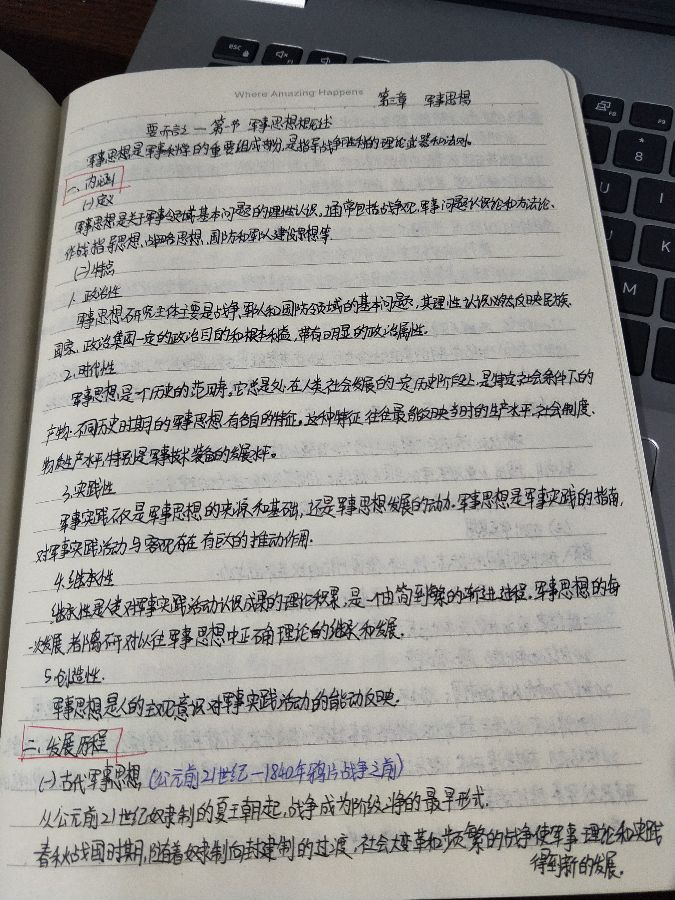 Where Amazing Happens
第三章 军事思想
要而言之 — 第一节 军事思想概述
军事思想是军事科学的重要组成部分,是指导战争胜利的理论武器和法则。
一、内涵
(一)定义
军事思想是关于军事领域基本问题的理性认识,通常包括战争观、军事问题认识论和方法论、
作战指导思想、战略思想、国防和军队建设思想等.
(二)特点
1. 政治性
军事思想研究主体主要是战争、军队和国防领域的基本问题,其理性认识必然反映民族、
国家、政治集团一定的政治目的和根本利益,带有明显的政治属性.
2.时代性
军事思想是一个历史的范畴。它总是处在人类社会发展的一定历史阶段上,是特定社会条件下的
产物.不同历史时期的军事思想有各自的特征。这种特征往往最能反映当时的生产水平、社会制度、
物质生产水平,特别是军事技术装备的发展水平。
3.实践性
军事实践不仅是军事思想的来源和基础,还是军事思想发展的动力.军事思想是军事实践的指南,
对军事实践活动与客观存在有巨大的推动作用.
4.继承性
继承性是人类对军事实践活动认识成果的理论积累,是一由简到繁的渐进过程。军事思想的每
一次发展,都离不开对以往军事思想中正确理论的继承和发展.
5.创造性.
军事思想是人的主观意识对军事实践活动的能动反映.
二、发展历程
(一)古代军事思想(公元前21世纪—1840年鸦片战争之前)
从公元前21世纪奴隶制的夏王朝起,战争成为阶级斗争的最早形式.
春秋战国时期,随着奴隶制向封建制的过渡,社会大变革和频繁的战争使军事理论和实践
得到新的发展.
esc
F8
F9
*
8
U
I
J
K
M